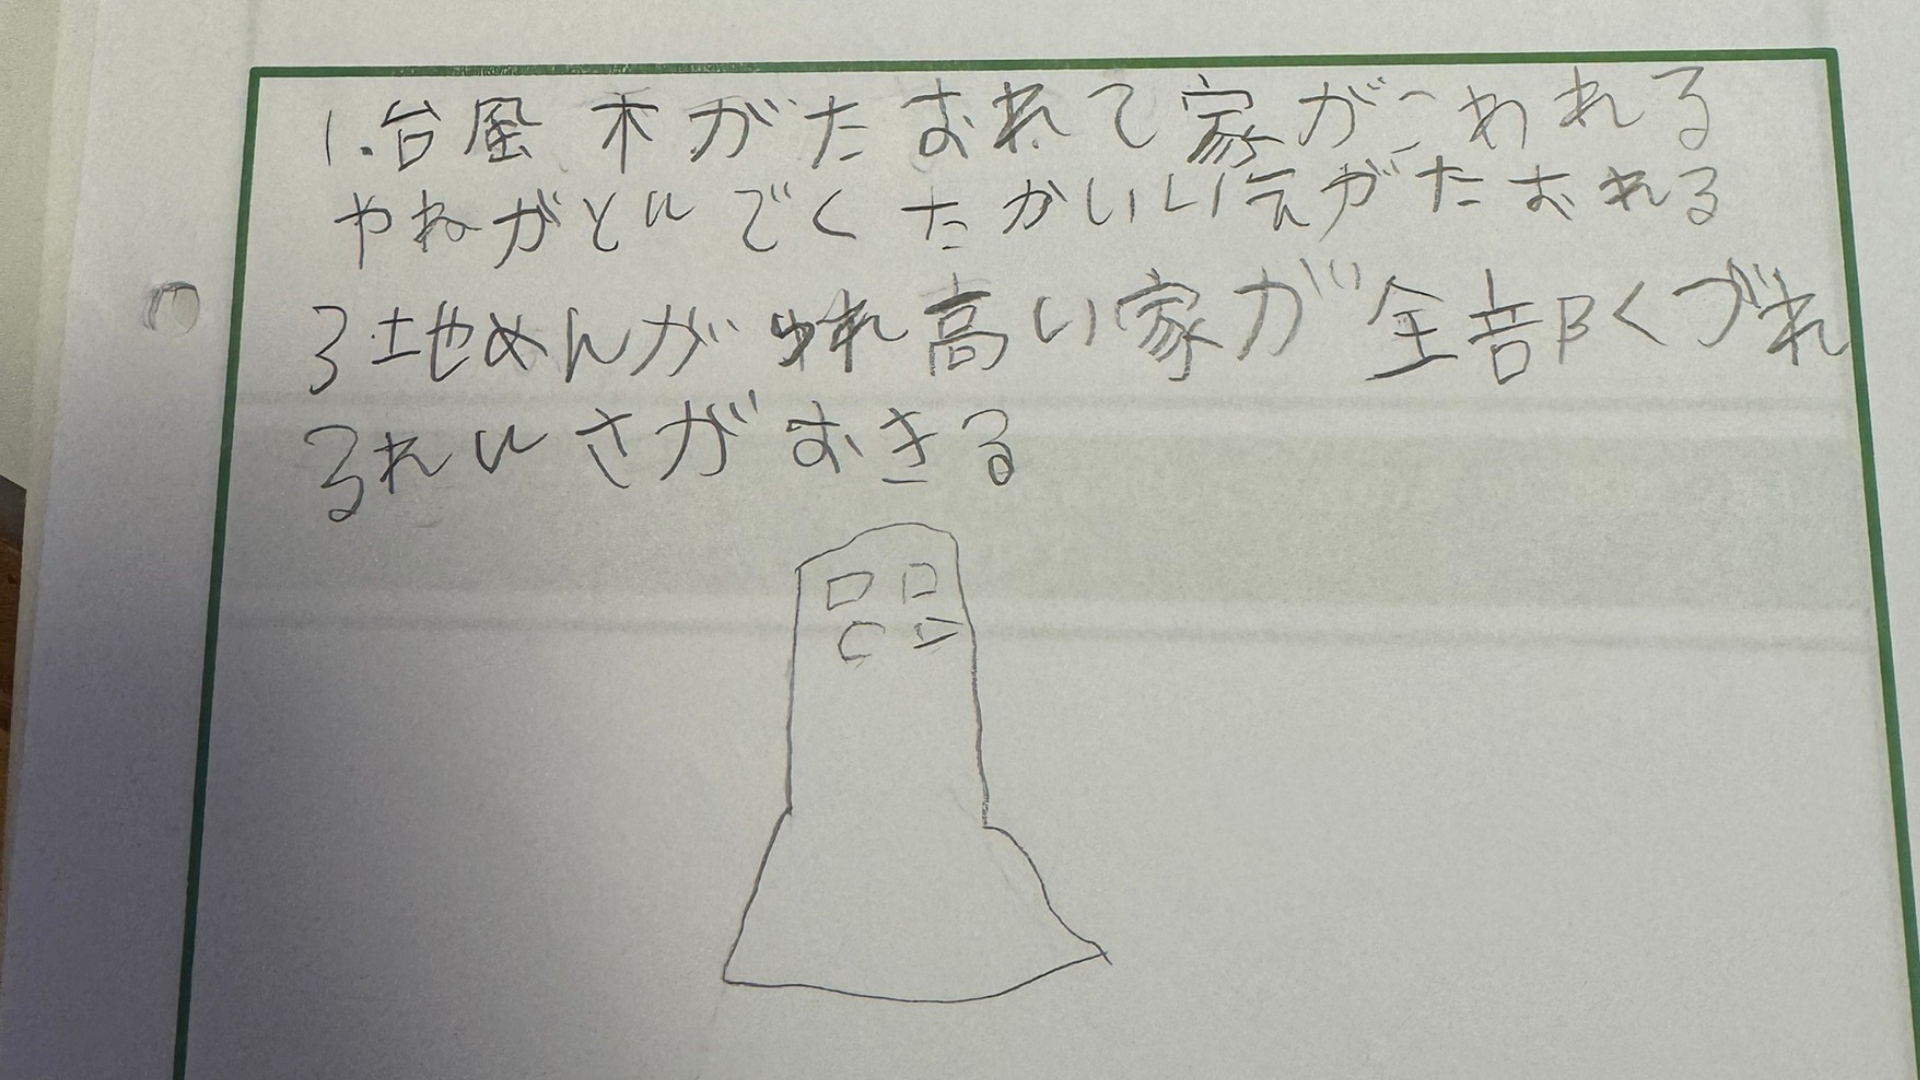 1.台風 木がたおれて家がこわれる
やねがとんでくたかいいえがたおれる
3.地めんがゆれ高い家が全部くづれ
るれんさがおきる